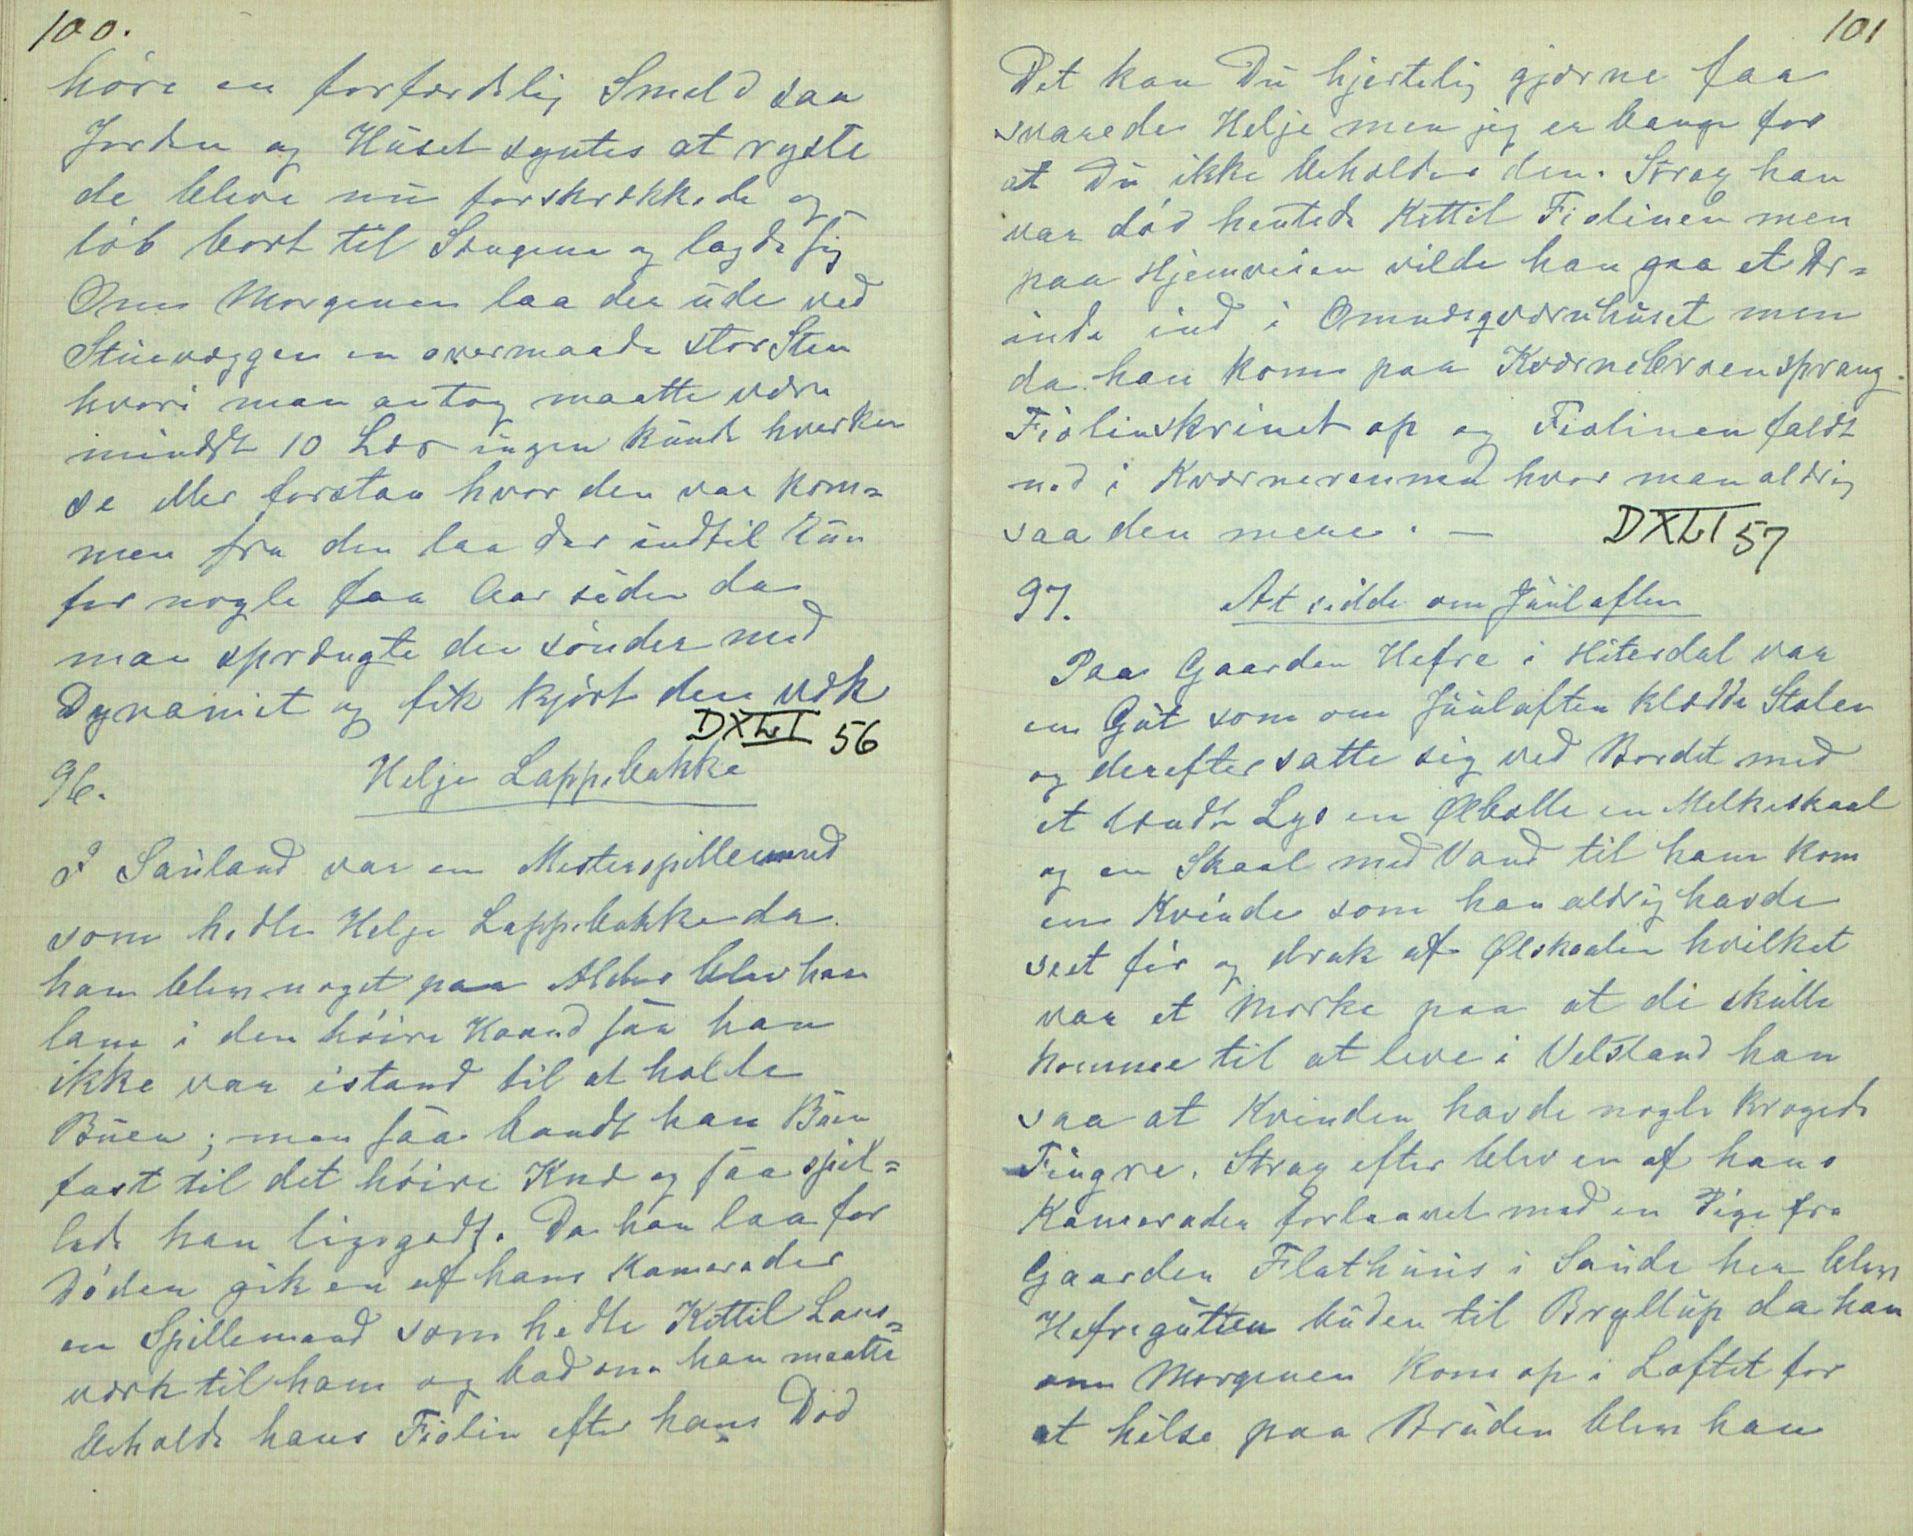 100.
höre en forfærdelig Smeld saa
Jorden og Huset syntes at ryste
de bleve nu forskrækkede og
löb bort til Sengene og lagde sig
Om Morgenen laa der ude ved
Stuevæggen en overmaade stor Sten
hvori man antog maatte være
mindst 10 Læs ingen kunde hverken
se eller forstaa hvor den var kom=
men fra den laa der indtil kun
for nogle faa Aar siden da
man sprængte den sönder med
Dynamit og fik kjört den væk
DXLI 56
96. Helje Lappebakke
I Sauland var en Mesterspillemand
som hedte Helje Lappebakke da
han blev noget paa Alder blev han
lam i den höire Haand saa han
ikke var istand til at holde
Buen; men saa bandt han Buen
fast til det höire Knæ og saa spil=
lede han ligegodt. Da han laa for
Döden gik en af hans Kamerader
en Spillemand som hedte Kittil Lons=
værk til ham og bad om han maatte
beholde hans Fiolin efter hans Död
101
Det kan Du hjertelig gjærne faa
svarede Helje men jeg er bange for
at Du ikke beholder den. Strax han
var död hentede Kittil Fiolinen men
paa Hjemveien vilde han gaa et Ær=
inde ind i Omnæsqværnhuset men
da han kom paa Kværnebroen sprang
Fiolinskrinet op og Fiolinen faldt
ned i Kværnerennen hvor man aldrig
saa den mere. —
DXLI 57
97. At sidde om Juulaften
Paa Gaarden Hefre i Hiterdal var
en Gut som om Juulaften klædte Stolen
og derefter satte sig ved Bordet med
et tændt Lys en Ølbolle en Melkeskaal
og en Skaal med Vand til ham kom
en Kvinde som han aldrig havde
seet för og drak af Ølskaalen hvilket
var et Mærke paa at de skulle
komme til at leve i Velstand han
saa at Kvinden havde nogle krogede
Fingre. Strax efter blev en af hans
Kamerader forlovet med en Pige fra
Gaarden Flathuus i Saude her blev
Hefregutten buden til Bryllup da han
om Morgenen kom op i Loftet for
at hilse paa Bruden blev han